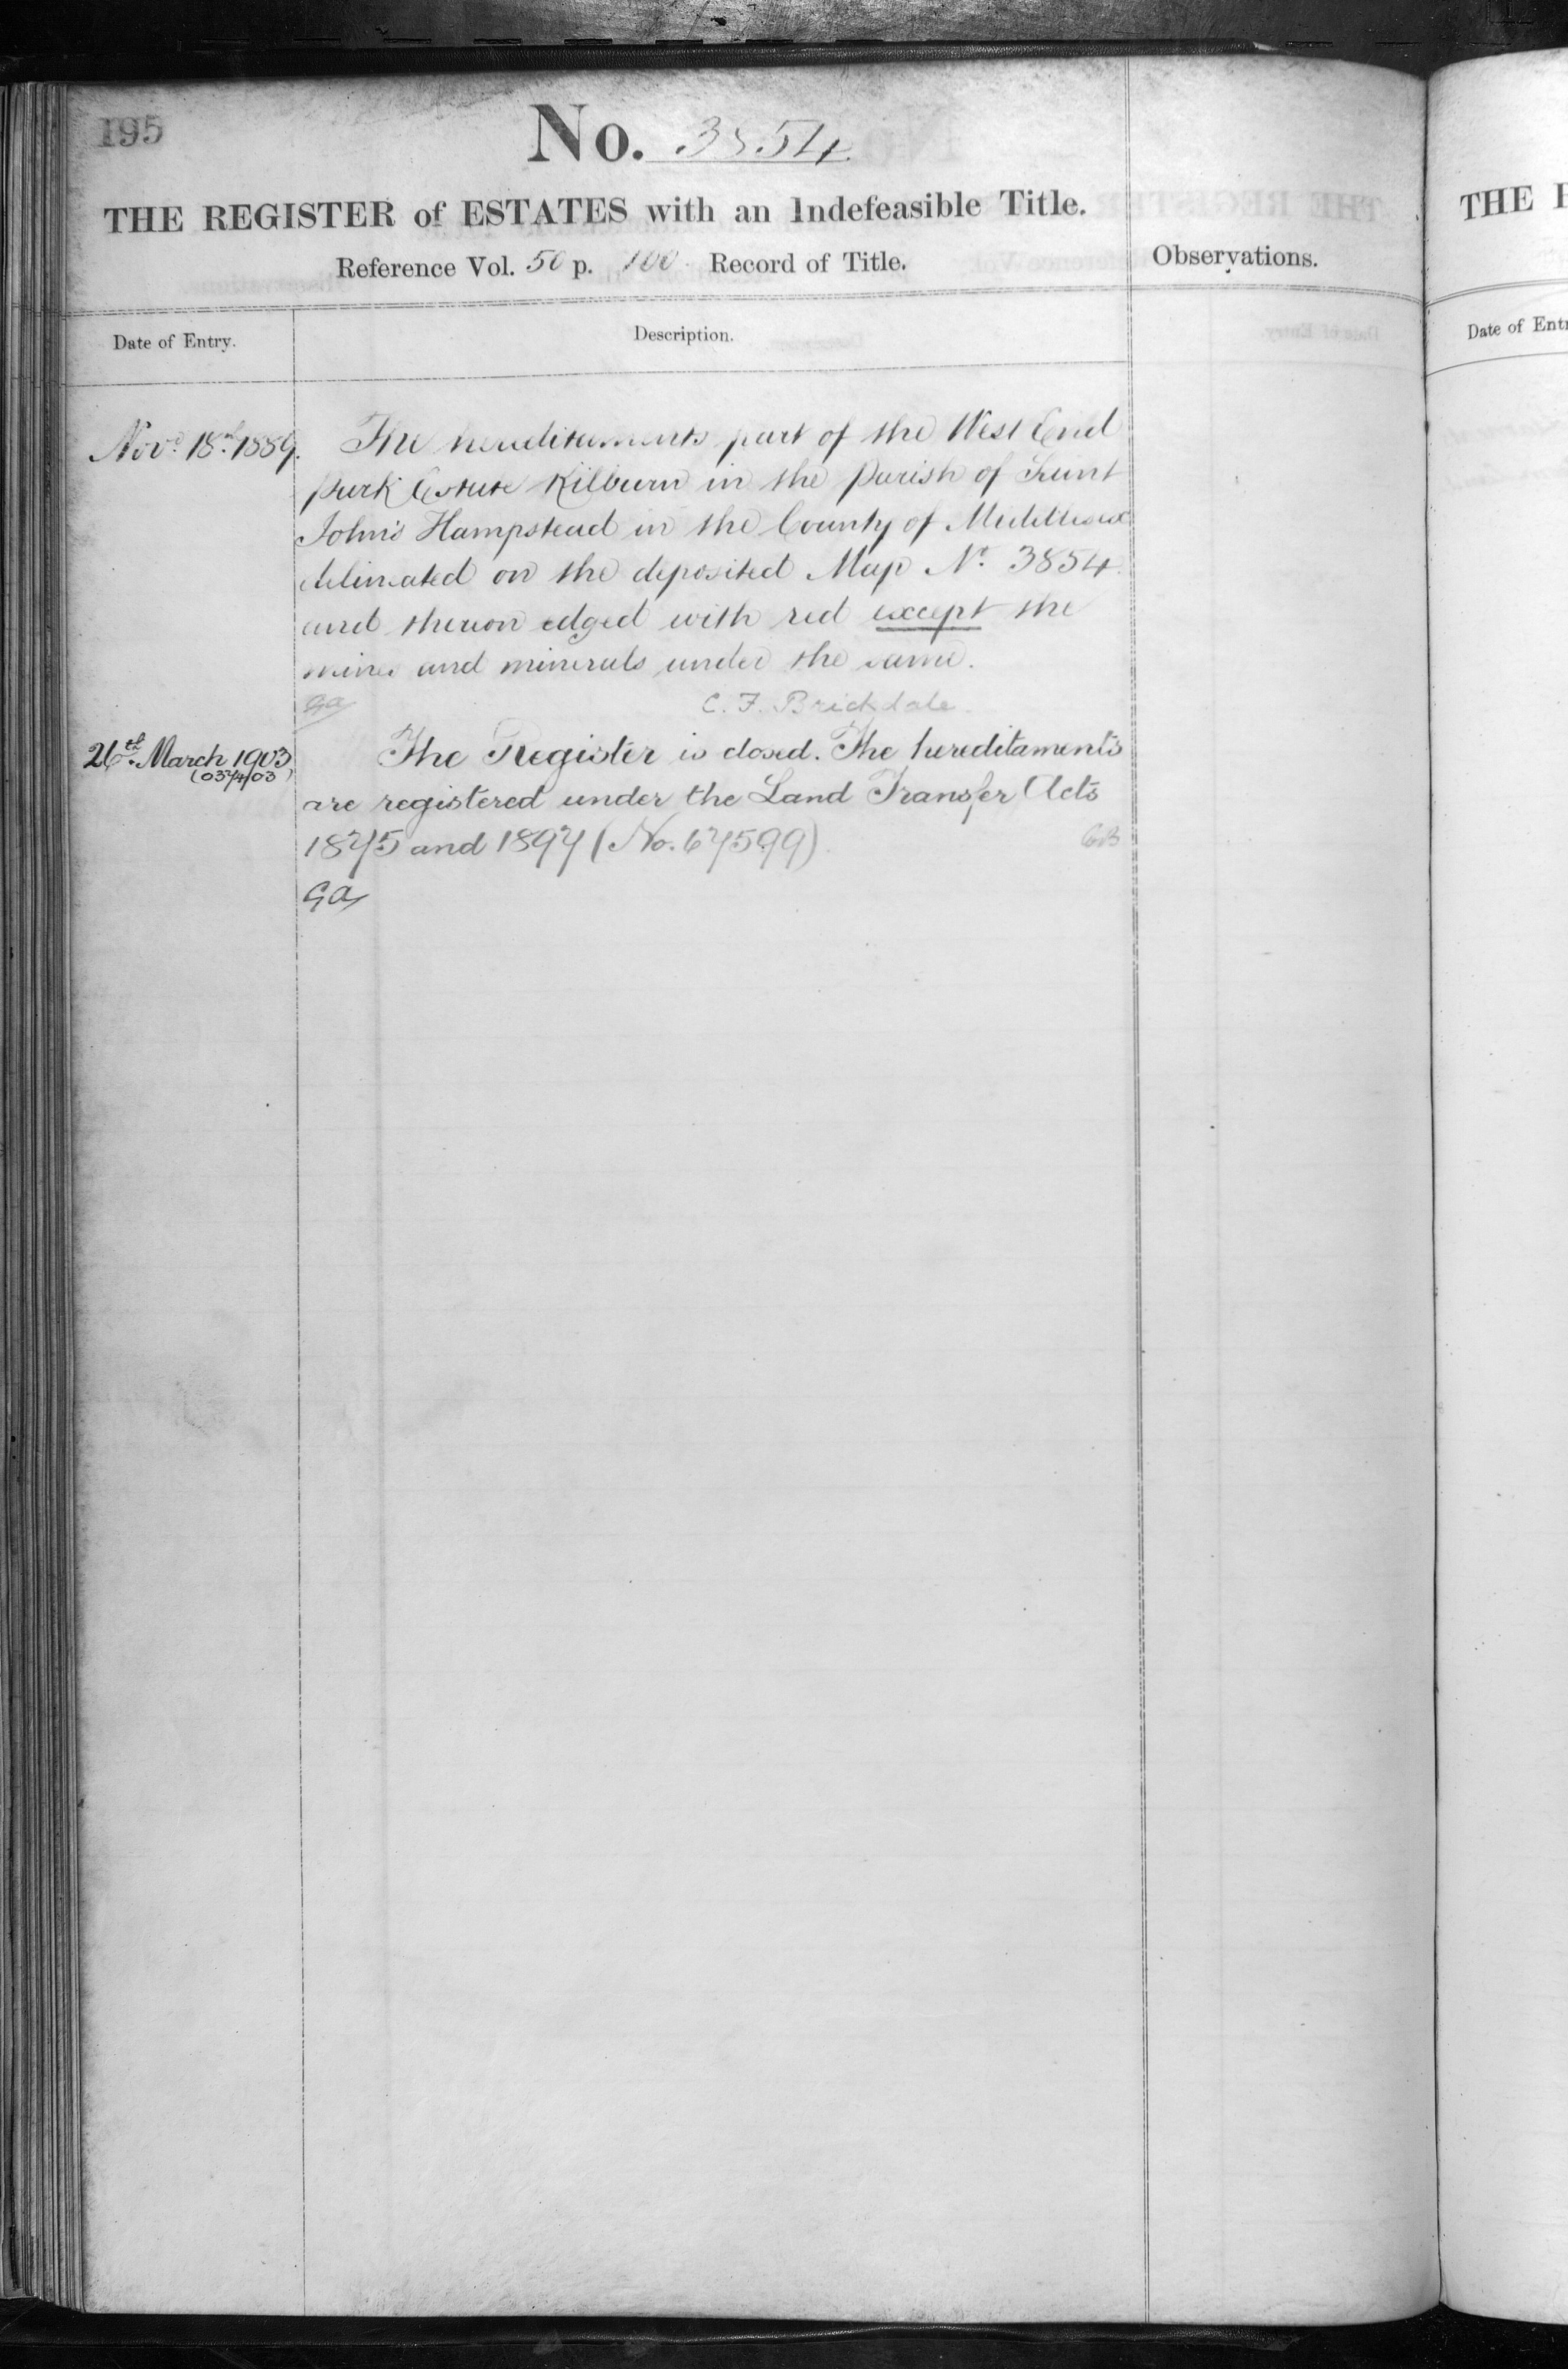 195
No. 3854
THE REGISTER of ESTATES with an Indefeasible Title.
Reference Vol. 50 p. 100 Record of Title.
Observations.
Date of Entry.
Description.
Novr. 18th 1889. The hereditaments part of the West End
Park Estate Kilburn in the Parish of Saint
John's Hampstead in the County of Middlesex
delineated on the deposited Map No. 3854
and thereon edged with red except the
mines and minerals under the same.
GA C. F. Brickdale.
26th March 1903 The Register is closed. The hereditaments
(0374/03) are registered under the Land Transfer Acts
1875 and 1897 (No. 67599).
GA
THE
Date of